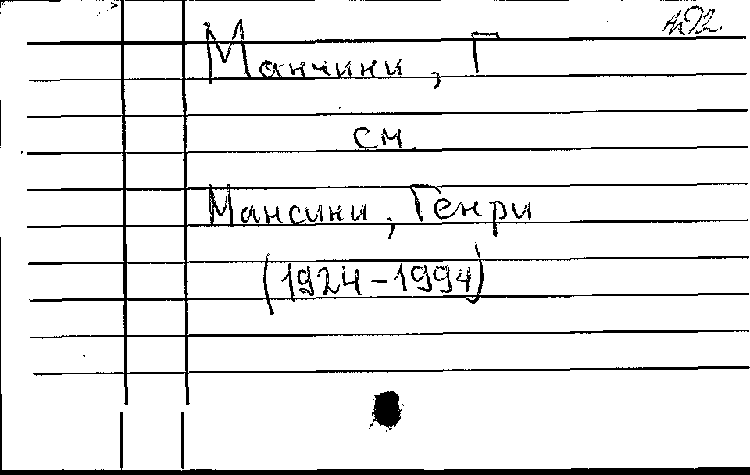 Манчини, Г
см.
Мансини, Генри
(1924-1994)